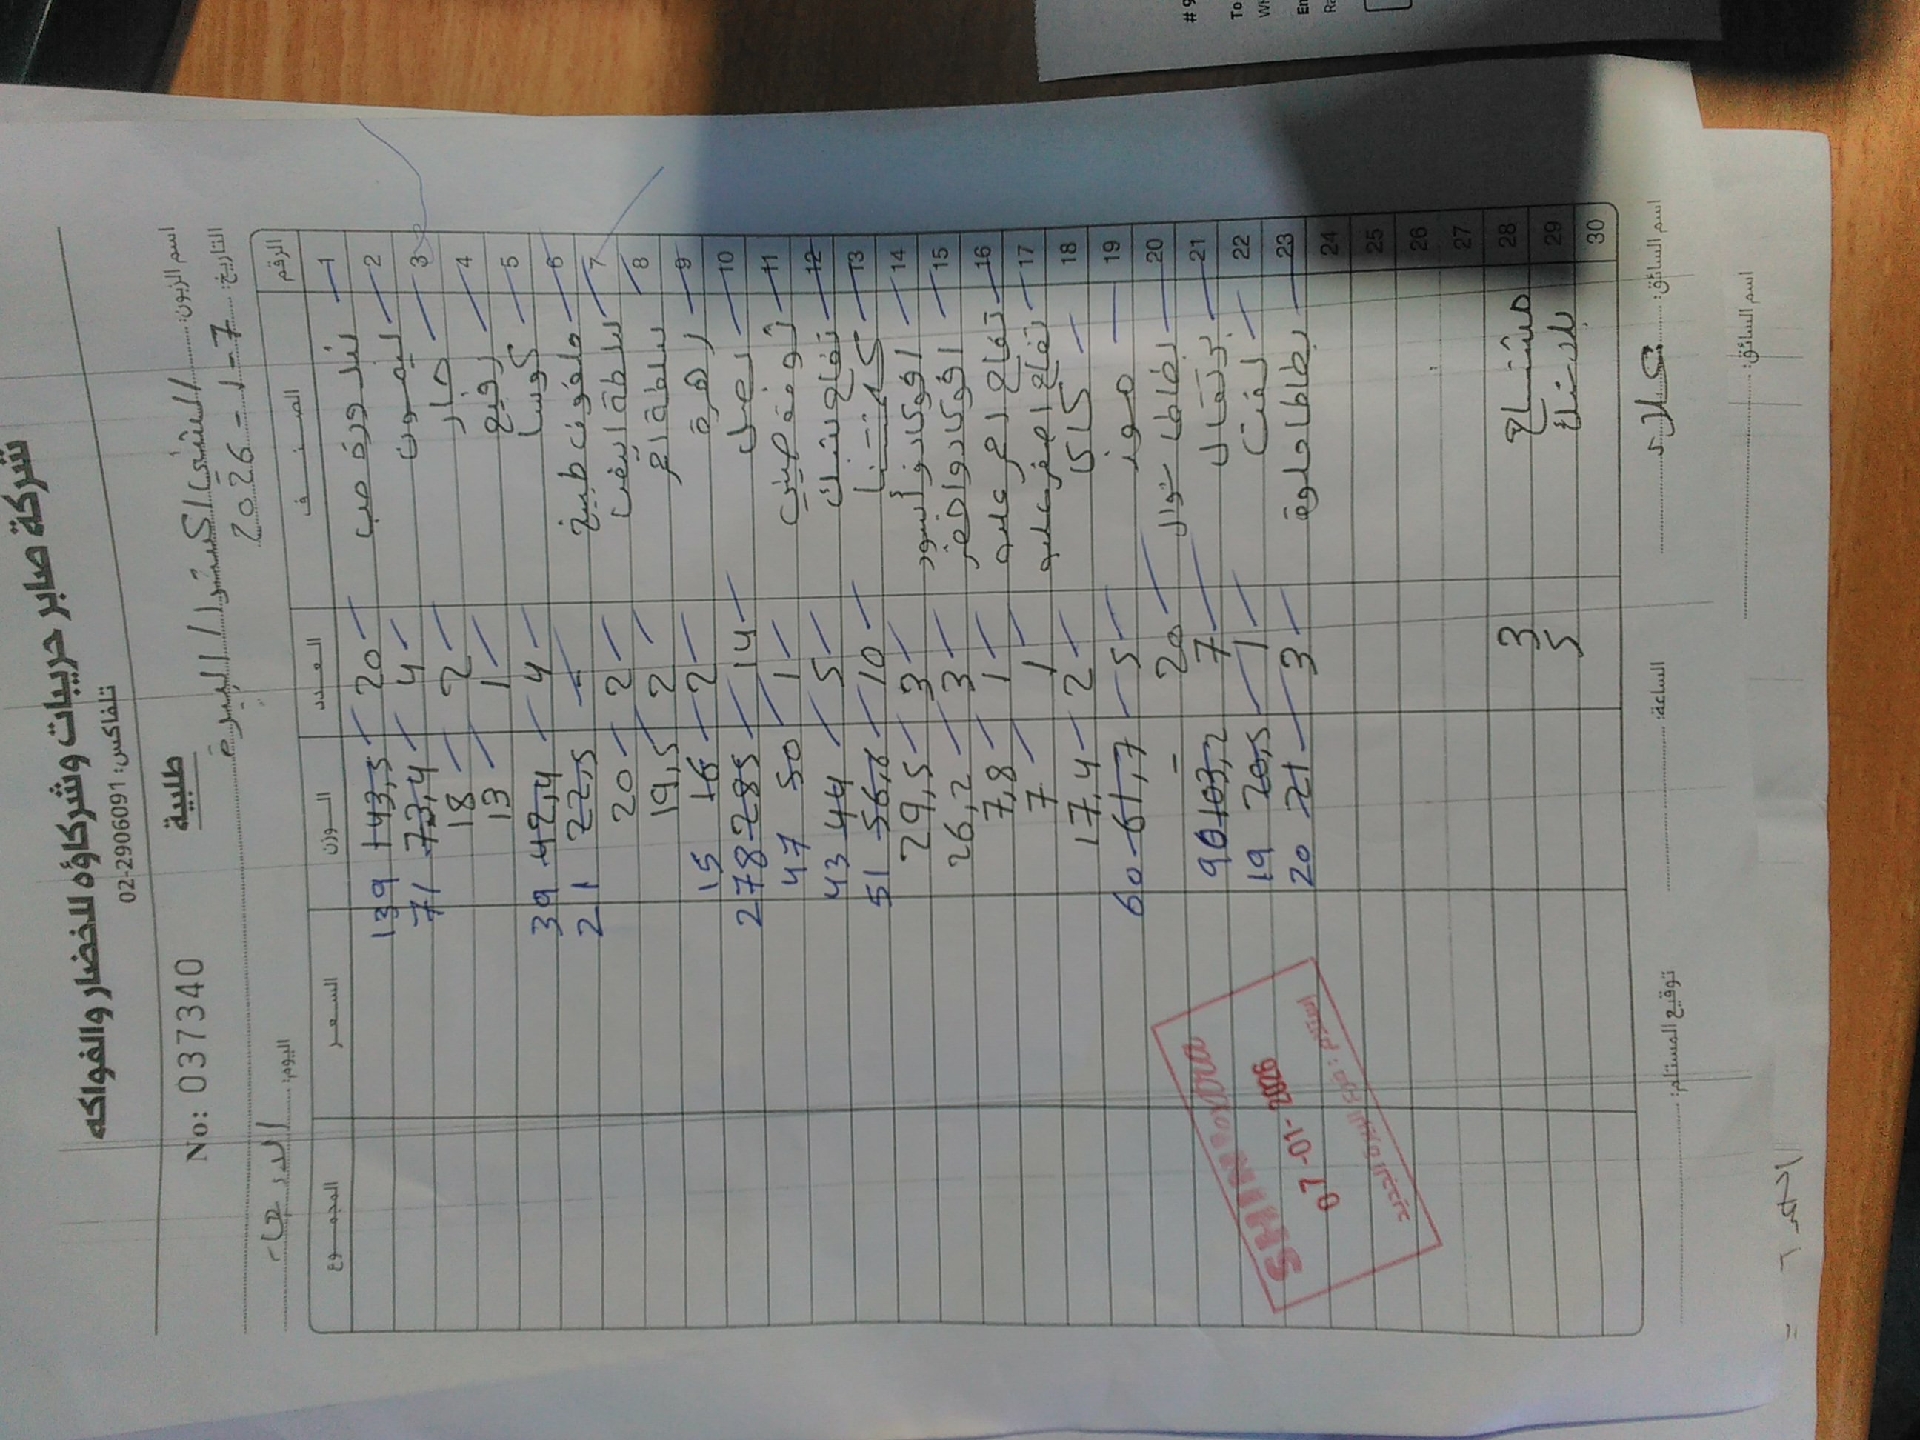 شركة صابر حريبات وشركاؤه للخضار والفواكه
تلفاكس: 02-2906091
طلبية
No: 037340
اسم الزبون: الشني اكسترا / البيرة
التاريخ: 7-1-2026
اليوم: الاربعاء
الرقم الصنف العدد الوزن السعر المجموع
1 بندورة حب 20 143,5 139
2 ليمون 4 73,4 71
3 حار 2 18
4 رفيع 1 13
5 كوسا 4 42,4 39
6 ملفوف طبيخ - 22,5 21
7 سلطة 2 20
8 سلطة 2 19,5
9 زهرة 2 16 15
10 بصل 14 285 278
11 1 50 47
12 تفاح 5 44 43
13 كلمنتينا 10 56,8 51
14 افوكادو اسود 3 29,5
15 افوكادو اخضر 3 26,2
16 تفاح احمر علبه 1 7,8
17 تفاح اصفر علبه 1 7
18 كاكا 2 17,4
19 موز 5 61,7 60
20 بطاطا 20 -
21 برتقال 7 103,2 90
22 لفت 1 20,5 19
23 بطاطا حلوة 3 21 20
24
25
26
27
28 مشتاح 3
29 بلاستيك 5
30
اسم السائق:
الساعة:
توقيع المستلم:
اسم السائق:
SHINI extra
07-01-2026
# 9
To
Wh
En
Ra